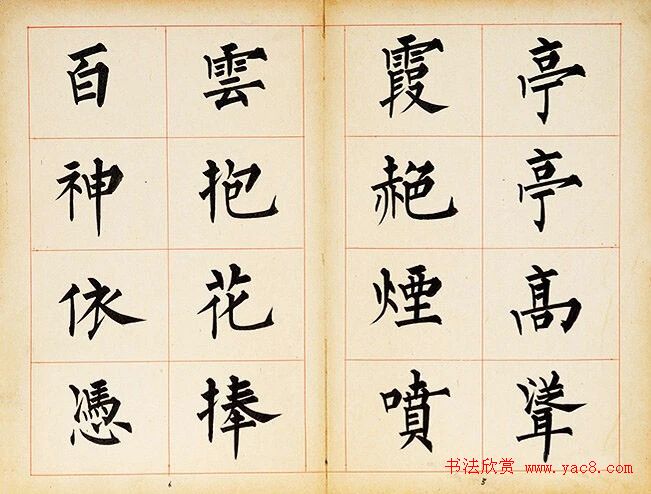 亭亭髙聳
霞赩煙噴
雲抱花捧
百神依憑
书法欣赏 www.yac8.com
5
6